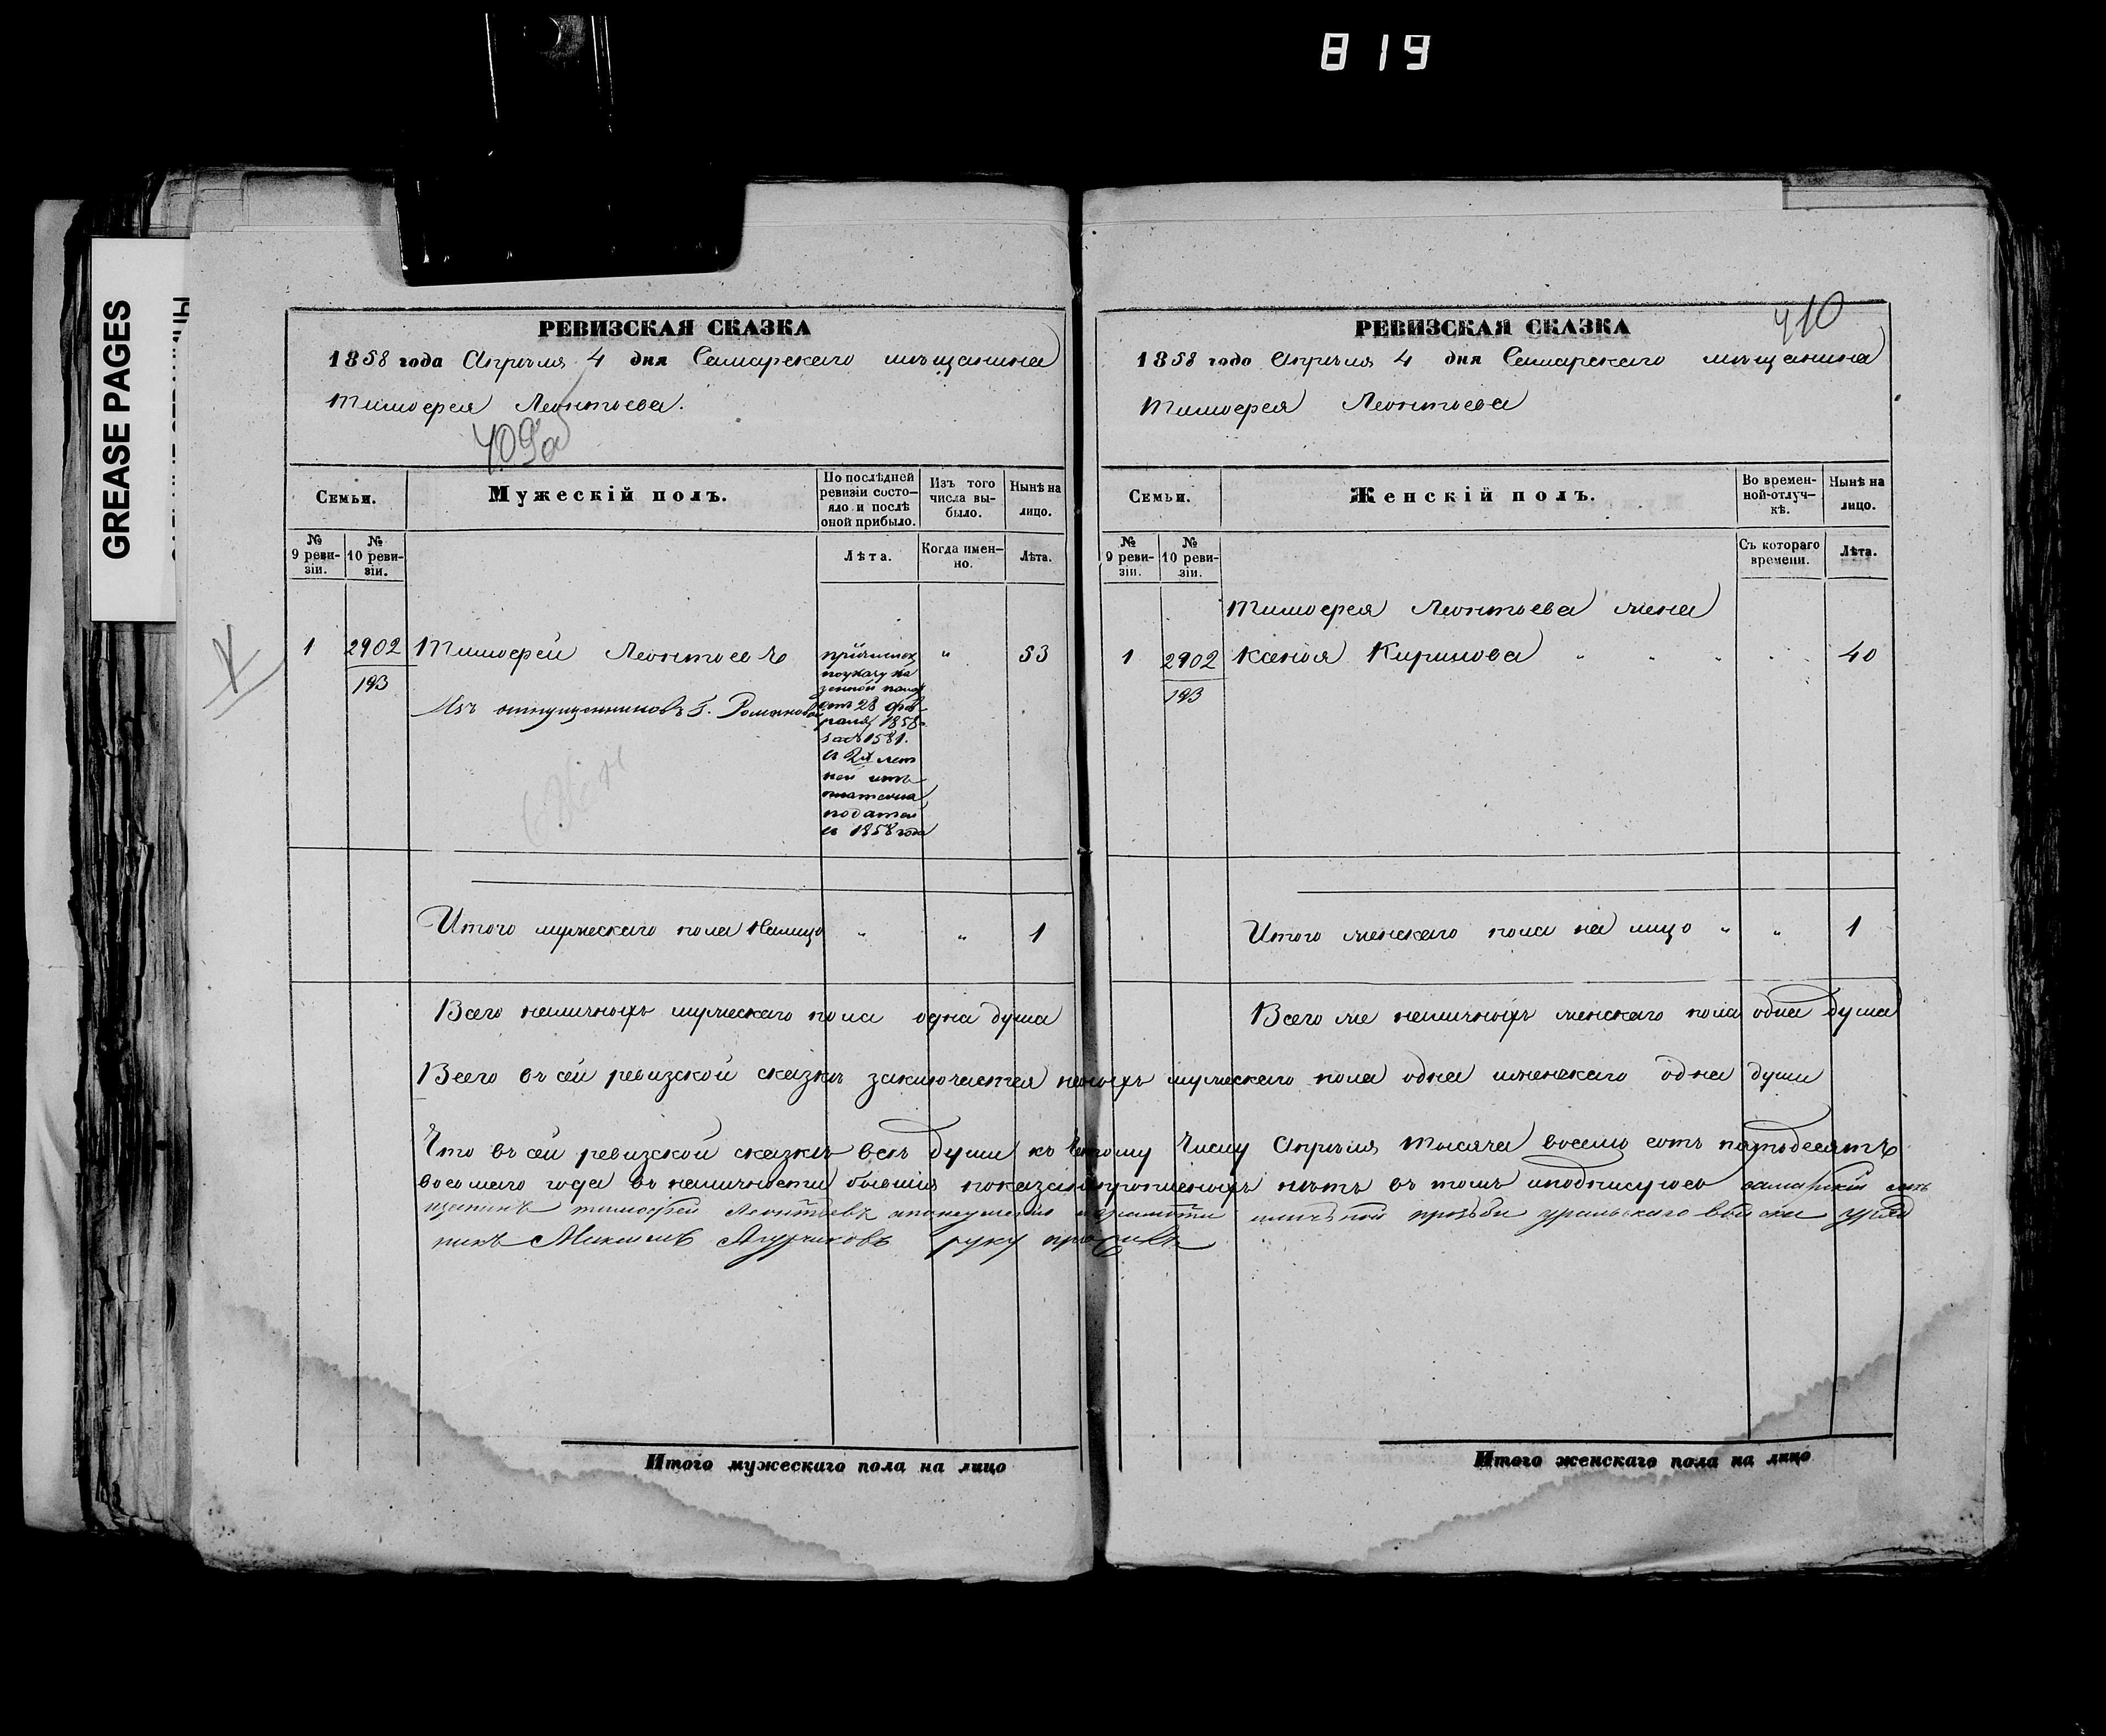 819
GREASE PAGES
409а
РЕВИЗСКАЯ СКАЗКА
1858 года Апрѣля 4 дня Самарскаго мѣщанина
Тимофея Леонтьева.
Семьи.
Мужескій полъ.
По послѣдней ревизіи состо-
яло и послѣ оной прибыло.
Изъ того числа вы-
было.
Нынѣ на лицо.
№ 9 реви-
зіи.
№ 10 реви-
зіи.
Лѣта.
Когда имен-
но.
Лѣта.
1 2902 Тимофей Леонтьевъ " 53
193
Изъ отпущенниковъ Г. Романовой
причислен
по указу ка
зенной палат
отъ 28 фев
раля 1858
за № 1581.
съ 2х лет
ней
платежа
податей
съ 1858 года
Итого мужескаго пола налицо " " 1
Всего наличныхъ мужескаго пола одна душа
410
РЕВИЗСКАЯ СКАЗКА
1858 года Апрѣля 4 дня Самарскаго мѣщанина
Тимофея Леонтьева
Семьи.
Женскій полъ.
Во времен-
ной-отлуч-
кѣ.
Нынѣ на лицо.
№ 9 реви-
зіи.
№ 10 реви-
зіи.
Съ котораго времени.
Лѣта.
Тимофея Леонтьева жена
1 2902 Ксенія Кирилова " " " 40
193
Итого женскаго пола на лицо " " 1
Всего же наличныхъ женскаго пола одна душа
Всего въ сей ревизской сказкѣ заключается мужескаго пола одна и женскаго одна души
Что въ сей ревизской сказкѣ всѣ души къ Четвертому Числу Апрѣля тысяча восемь сотъ пятьдесятъ
восьмаго года въ наличности бывшія показаны и пропущеныхъ нѣтъ въ томъ и подписуюсь самарскій мѣ
щанинъ тимофей Леонтьевъ а по неуменію грамоти и личьной прозьби уральскаго войска уряд
никъ руку приложилъ
Итого мужескаго пола на лицо
Итого женскаго пола на лицо